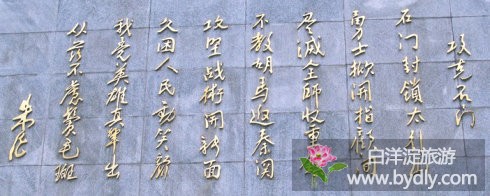 攻克石门
石门封锁太行
勇士掀开指顾
尽灭全师收重
不教胡马返秦関
攻坚战術开新面
久困人民動笑颜
我党英雄真辈出
从兹不慮鬓毛斑
朱德
白洋淀旅游
www.bydly.com